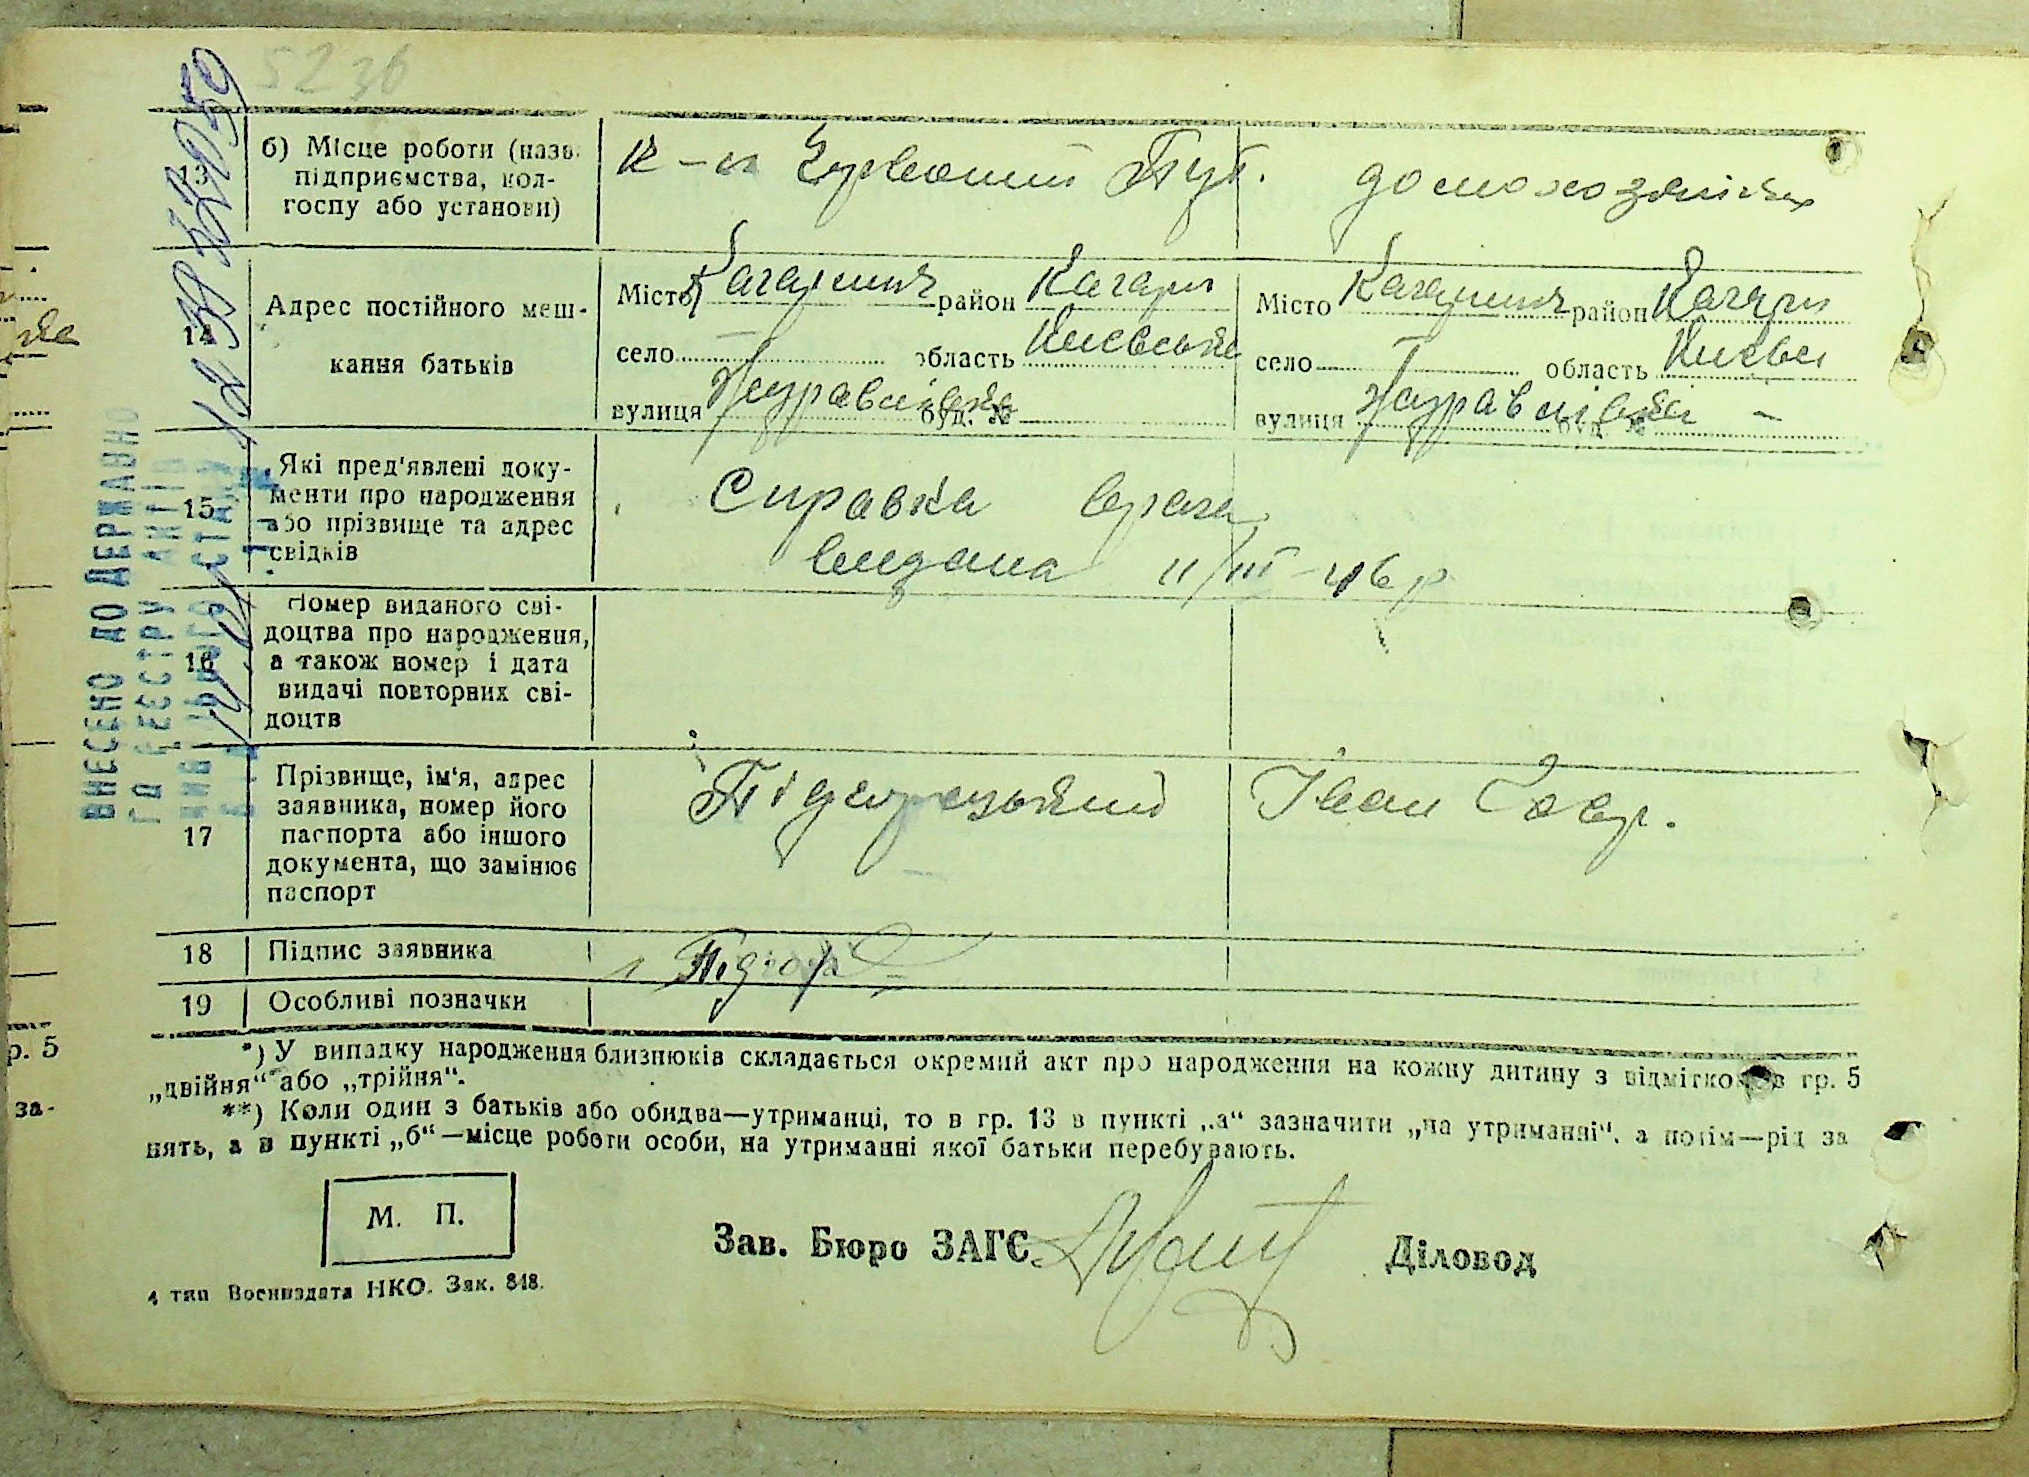 5236
б) Місце роботи (назв.
13
підприємства, кол-
госпу або установи)
к-п Червоний Пут.
домохозяйка
14
Адрес постійного меш-
кання батьків
Місто Кагарлик район Кагарл
село — область Київська
вулиця Журавлівка буд. №
Місто Кагарлик район Кагарл
село — область Київс
вулиця Журавлівка буд. № —
15
Які пред'явлені доку-
менти про народження
або прізвище та адрес
свідків
Справка врача
видана 11/III-46 р
16
Номер виданого сві-
доцтва про народження,
а також номер і дата
видачі повторних сві-
доцтв
17
Прізвище, ім'я, адрес
заявника, номер його
паспорта або іншого
документа, що замінює
паспорт
Підгорецький Іван
18 Підпис заявника
Підгор
19 Особливі позначки
*) У випадку народження близнюків складається окремий акт про народження на кожну дитину з відміткою в гр. 5
„двійня“ або „трійня“.
**) Коли один з батьків або обидва—утриманці, то в гр. 13 в пункті „а“ зазначити „на утриманні“, а потім—рід за
нять, а в пункті „б“—місце роботи особи, на утриманні якої батьки перебувають.
М. П.
Зав. Бюро ЗАГС
Діловод
4 тип Воениздата НКО. Зак. 848.
ВНЕСЕНО ДО ДЕРЖАВНО
ГО РЕЄСТРУ АКТІВ
ЦИВІЛЬНОГО СТАНУ
р. 5
за-